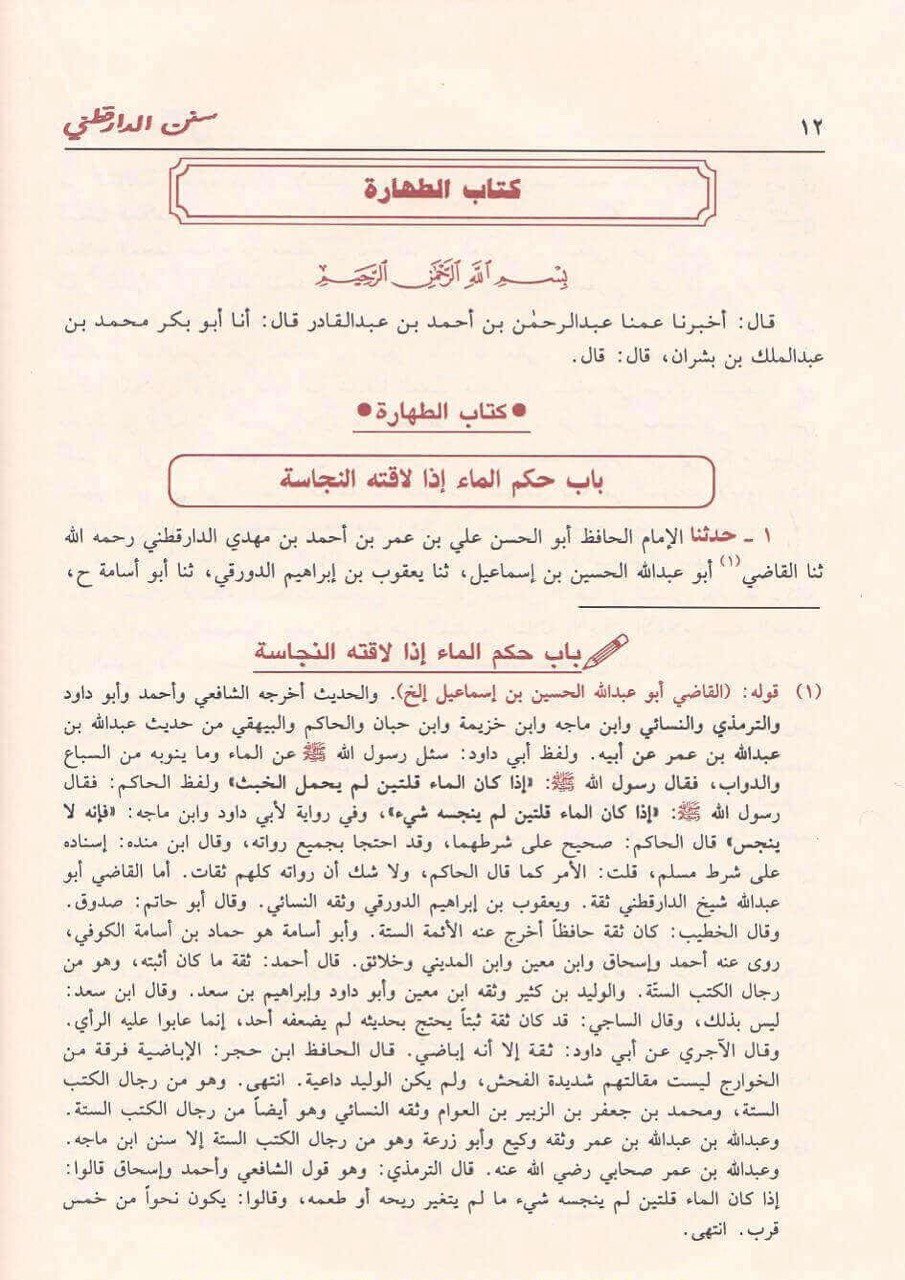 ١٢
سنن الدارقطني
كتاب الطهارة
بِسْمِ اللَّهِ الرَّحْمَٰنِ الرَّحِيمِ
قال: أخبرنا عمنا عبدالرحمٰن بن أحمد بن عبدالقادر قال: أنا أبو بكر محمد بن
عبدالملك بن بشران، قال: قال.
● كتاب الطهارة ●
باب حكم الماء إذا لاقته النجاسة
١ ـ حدثنا الإمام الحافظ أبو الحسن علي بن عمر بن أحمد بن مهدي الدارقطني رحمه الله
ثنا القاضي(١) أبو عبدالله الحسين بن إسماعيل، ثنا يعقوب بن إبراهيم الدورقي، ثنا أبو أسامة ح،
باب حكم الماء إذا لاقته النجاسة
(١) قوله: (القاضي أبو عبدالله الحسين بن إسماعيل إلخ). والحديث أخرجه الشافعي وأحمد وأبو داود
والترمذي والنسائي وابن ماجه وابن خزيمة وابن حبان والحاكم والبيهقي من حديث عبدالله بن
عبدالله بن عمر عن أبيه. ولفظ أبي داود: سئل رسول الله ﷺ عن الماء وما ينوبه من السباع
والدواب، فقال رسول الله ﷺ: «إذا كان الماء قلتين لم يحمل الخبث» ولفظ الحاكم: فقال
رسول الله ﷺ: «إذا كان الماء قلتين لم ينجسه شيء»، وفي رواية لأبي داود وابن ماجه: «فإنه لا
ينجس» قال الحاكم: صحيح على شرطهما، وقد احتجا بجميع رواته، وقال ابن منده: إسناده
على شرط مسلم، قلت: الأمر كما قال الحاكم، ولا شك أن رواته كلهم ثقات. أما القاضي أبو
عبدالله شيخ الدارقطني ثقة. ويعقوب بن إبراهيم الدورقي وثقه النسائي. وقال أبو حاتم: صدوق.
وقال الخطيب: كان ثقة حافظاً أخرج عنه الأئمة الستة. وأبو أسامة هو حماد بن أسامة الكوفي،
روى عنه أحمد وإسحاق وابن معين وابن المديني وخلائق. قال أحمد: ثقة ما كان أثبته، وهو من
رجال الكتب الستّة. والوليد بن كثير وثقه ابن معين وأبو داود وإبراهيم بن سعد. وقال ابن سعد:
ليس بذلك، وقال الساجي: قد كان ثقة ثبتاً يحتج بحديثه لم يضعفه أحد، إنما عابوا عليه الرأي.
وقال الآجري عن أبي داود: ثقة إلا أنه إباضي. قال الحافظ ابن حجر: الإباضية فرقة من
الخوارج ليست مقالتهم شديدة الفحش، ولم يكن الوليد داعية. انتهى. وهو من رجال الكتب
الستة، ومحمد بن جعفر بن الزبير بن العوام وثقه النسائي وهو أيضاً من رجال الكتب الستة.
وعبدالله بن عبدالله بن عمر وثقه وكيع وأبو زرعة وهو من رجال الكتب الستة إلا سنن ابن ماجه.
وعبدالله بن عمر صحابي رضي الله عنه. قال الترمذي: وهو قول الشافعي وأحمد وإسحاق قالوا:
إذا كان الماء قلتين لم ينجسه شيء ما لم يتغير ريحه أو طعمه، وقالوا: يكون نحواً من خمس
قرب. انتهى.